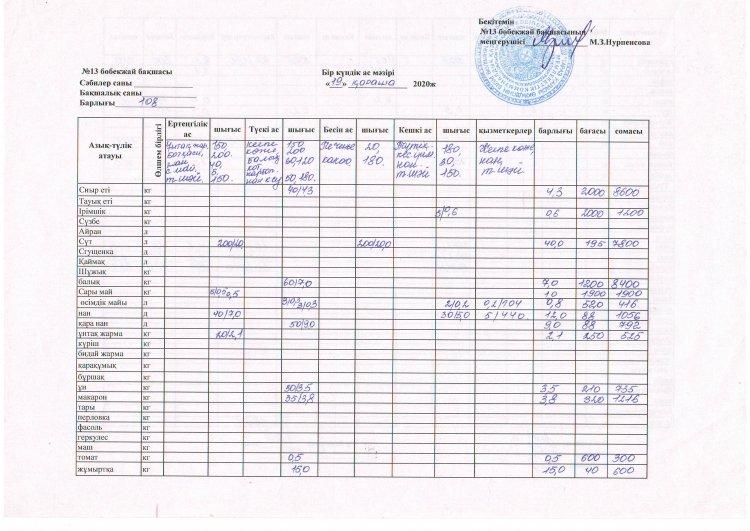 Бекітемін
№13 бөбекжай бақшасының
меңгерушісі М.З.Нурпенсова
№13 бөбекжай бақшасы
Сәбилер саны
Бақшалық саны
Барлығы 108
Бір күндік ас мәзірі
«19» қараша 2020ж
Азық-түлік атауы Өлшем бірлігі Ертеңгілік ас шығыс Түскі ас шығыс Бесін ас шығыс Кешкі ас шығыс қызметкерлер барлығы бағасы сомасы
Ұнтақ жар. ботқасы, нан, с май, т-шәй. 150 200. 40, 5, 150. кеспе көже, балық кот нан 150 200 60,120 50, 180. Печенье какао 20 180. нан т-шәй 180 30, 150. Кеспе көже нан, т-шәй
Сиыр еті кг 40/43 4,3 2000 8600
Тауық еті кг
Ірімшік кг 5/0,6 0,6 2000 1200
Сүзбе кг
Айран л
Сүт л 200/20 200/20,0 40,0 195 7800
Сгущенка л
Қаймақ кг
Шұжық кг
балық кг 60/7,0 7,0 1200 8400
Сары май кг 5/0,5 0,5 1,0 1900 1900
өсімдік майы л 3/0,3 3/0,3 2/0,2 0,2/104 0,8 520 416
нан д 40/7,0 30/5,0 5/440 12,0 88 1056
қара нан д 50/90 9,0 88 792
ұнтақ жарма кг 20/2,1 2,1 250 525
күріш кг
бидай жарма кг
қарақұмық кг
бұршақ кг
ұн кг 30/3,5 3,5 210 735
макарон кг 35/3,8 3,8 320 1216
тары кг
перловка кг
фасоль кг
геркулес кг
маш кг
томат кг 0,5 0,5 600 300
жұмыртқа кг 15,0 15,0 40 600